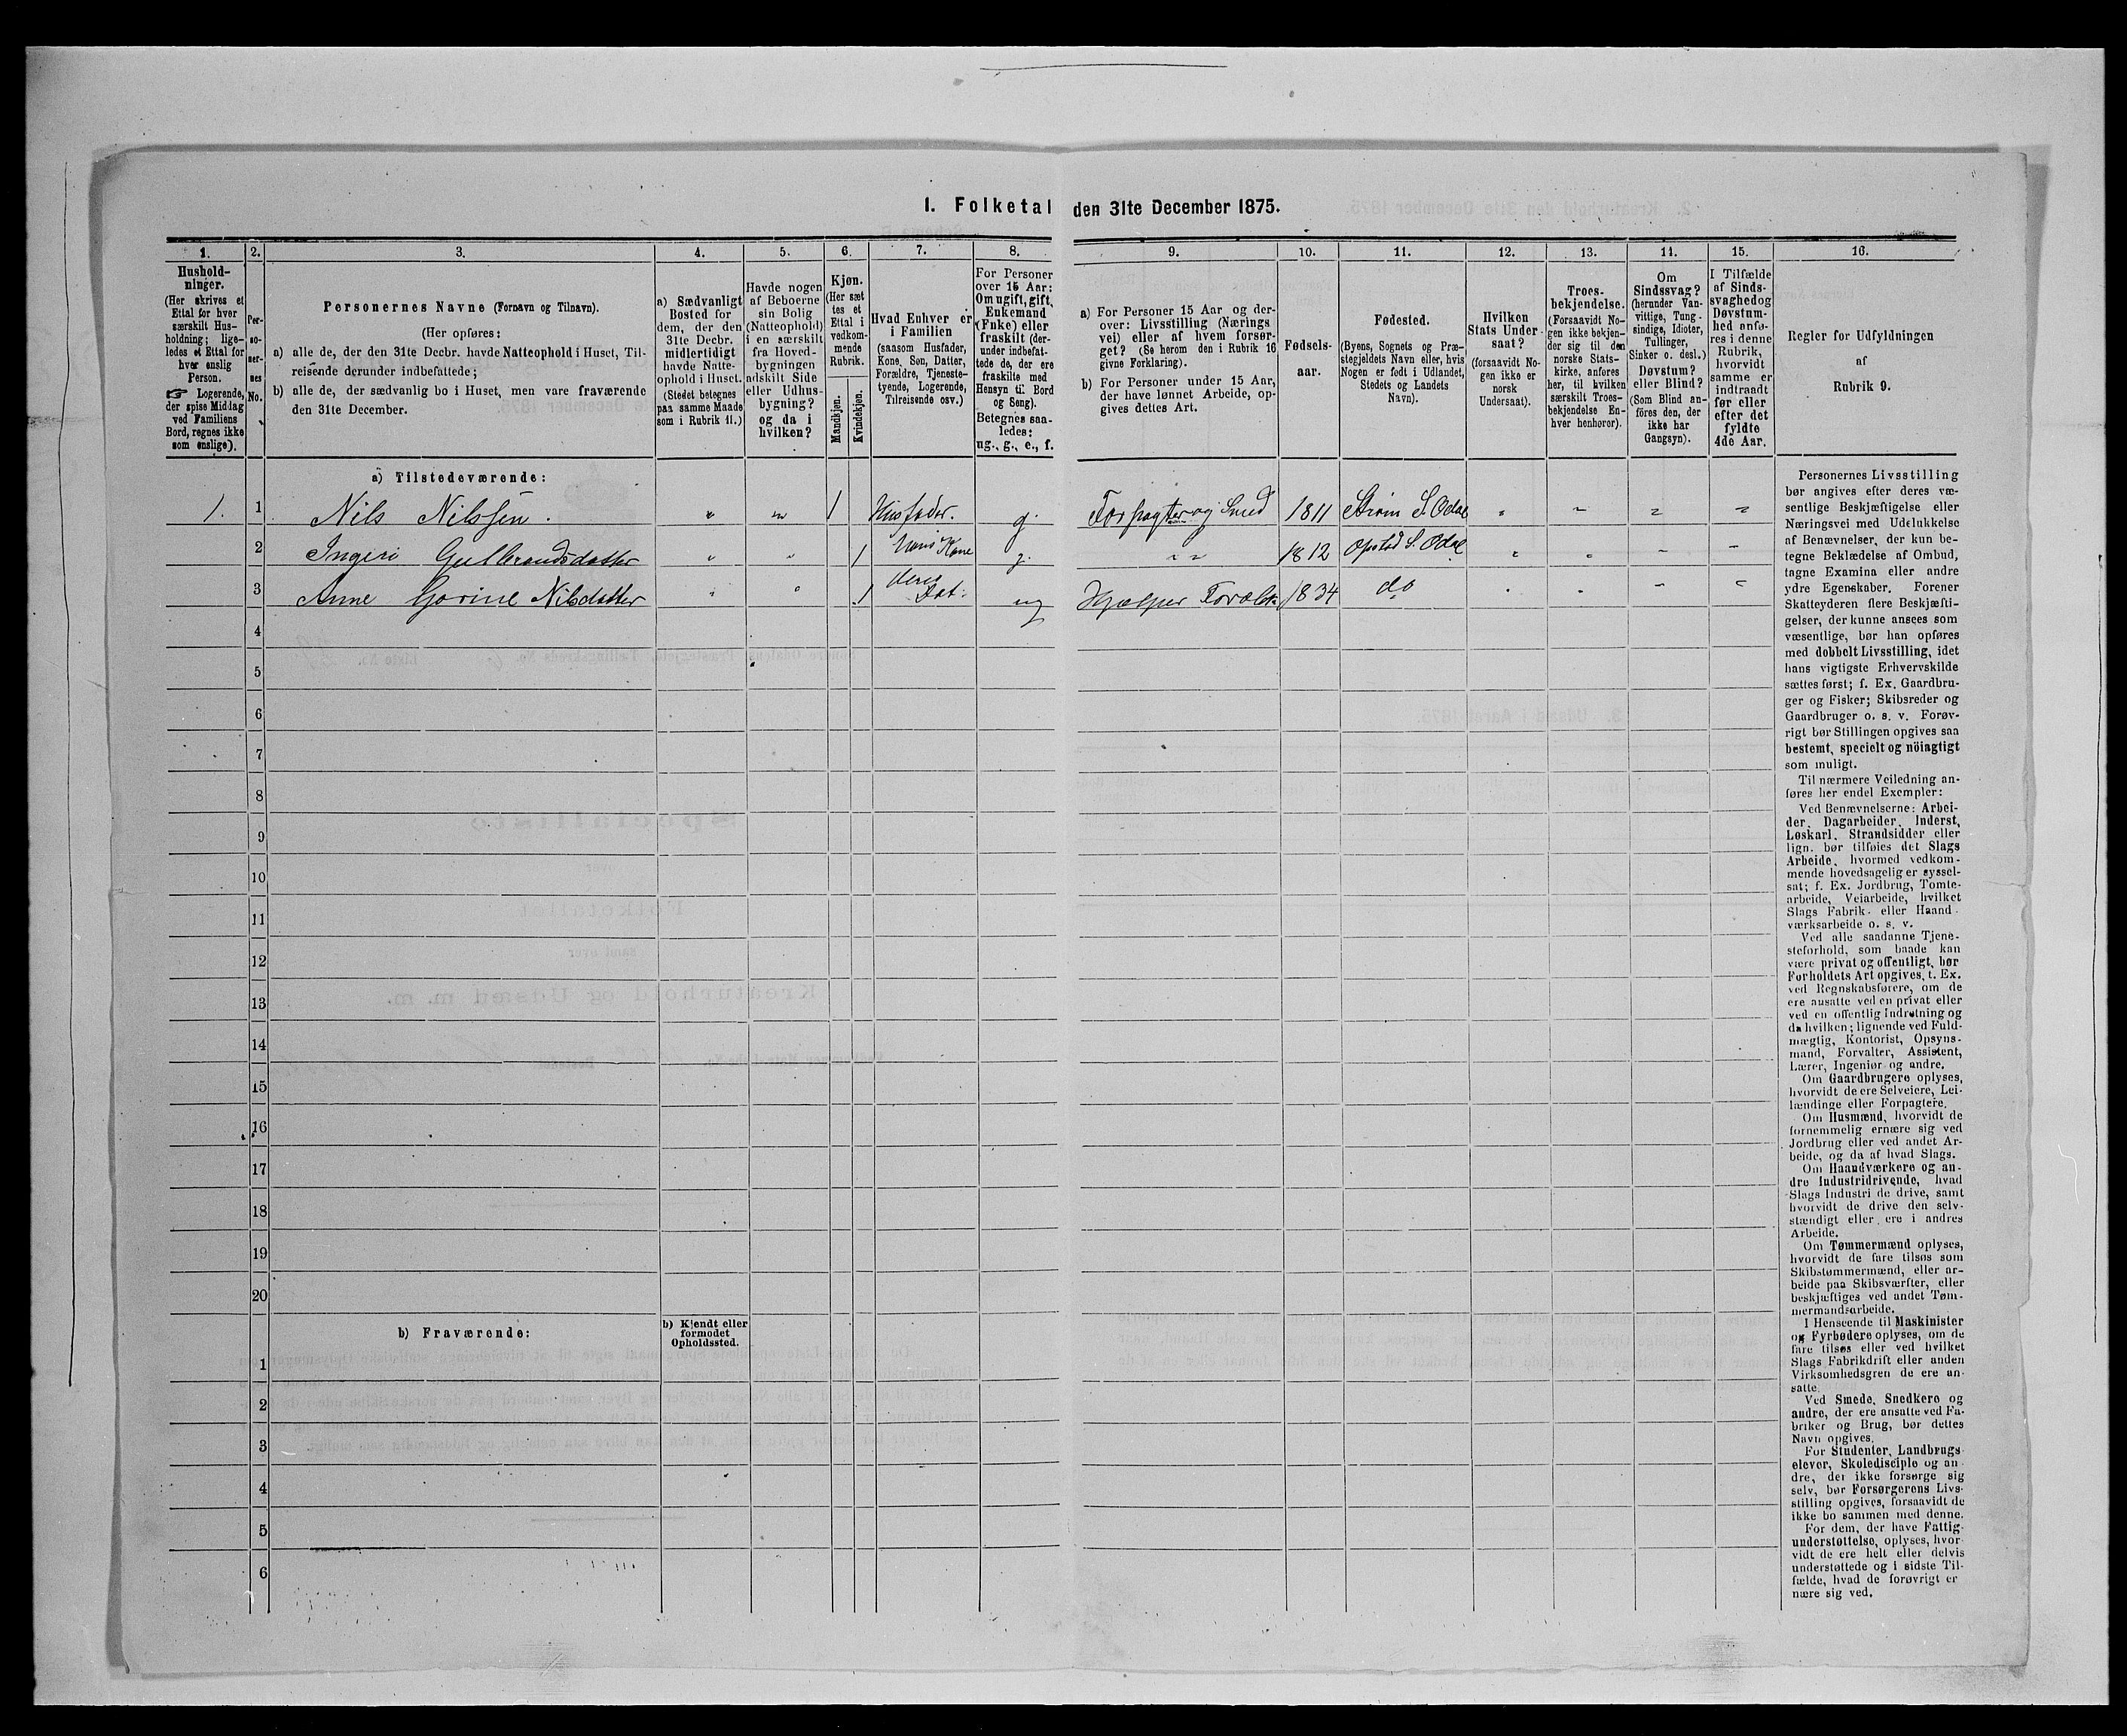 I. Folketal den 31te December 1875.
1. 2. 3. 4. 5. 6. 7. 8. 9. 10. 11. 12. 13. 14. 15. 16.
Hushold-
ninger.
(Her skrives et
Ettal for hver
særskilt Hus-
holdning; lige-
ledes et Ettal for
hver enslig
Person.
☞ Logerende,
der spise Middag
ved Familiens
Bord, regnes ikke
som enslige).
Per-
so-
ner-
nes
No.
Personernes Navne (Fornavn og Tilnavn).
(Her opføres:
a) alle de, der den 31te Decbr. havde Natteophold i Huset, Til-
reisende derunder indbefattede;
b) alle de, der sædvanlig bo i Huset, men vare fraværende
den 31te December.
a) Sædvanligt
Bosted for
dem, der den
31te Decbr.
midlertidigt
havde Natte-
ophold i Huset.
(Stedet betegnes
paa samme Maade
som i Rubrik 11.)
Havde nogen
af Beboerne
sin Bolig
(Natteophold)
i en særskilt
fra Hoved-
bygningen
adskilt Side
eller Udhus-
bygning?
og da i
hvilken?
Kjøn.
(Her sæt
tes et
Ettal i
vedkom-
mende
Rubrik.
Mandkjøn.
Kvindekjøn.
Hvad Enhver er
i Familien
(saasom Husfader,
Kone, Søn, Datter,
Forældre, Tjeneste-
tyende, Logerende,
Tilreisende osv.)
For Personer
over 15 Aar:
Om ugift, gift,
Enkemand
(Enke) eller
fraskilt (der-
under indbefat-
tede de, der ere
fraskilte med
Hensyn til Bord
og Seng).
Betegnes saa-
ledes:
ug., g., e., f.
a) For Personer 15 Aar og der-
over: Livsstilling (Nærings
vei) eller af hvem forsør-
get? (Se herom den i Rubrik 16
givne Forklaring).
b) For Personer under 15 Aar,
der have lønnet Arbeide, op-
gives dettes Art.
Fødsels-
aar.
Fødested.
(Byens, Sognets og Præ-
stegjeldets Navn eller, hvis
Nogen er født i Udlandet,
Stedets og Landets
Navn).
Hvilken
Stats Under-
saat?
(forsaavidt No-
gen ikke er
norsk
Undersaat).
Troes-
bekjendelse.
(Forsaavidt No-
gen ikke bekjen-
der sig til den
norske Stats-
kirke, anføres
her, til hvilken
særskilt Troes-
bekjendelse En-
hver henhører).
Om
Sindssvag?
(herunder Van-
vittige, Tung-
sindige, Idioter,
Tullinger,
Sinker o. desl.)
Døvstum?
eller Blind?
(Som Blind an-
føres den, der
ikke har
Gangsyn).
I Tilfælde
af Sinds-
svaghed og
Døvstum-
hed anfø-
res i denne
Rubrik,
hvorvidt
samme er
indtraadt
før eller
efter det
fyldte
4de Aar.
Regler for Udfyldningen
af
Rubrik 9.
a) Tilstedeværende:
1. 1 Nils Nilssen. " " 1 Husfader. g. Forpagter og Smed 1811 Strøm S. Odal " " " "
2 Ingeri Gulbrandsdatter " " 1 hans Kone g. " " 1812 Opstad S. Odal " " " "
3 Anne Gorine Nilsdatter " " 1 deres Dat. ug Hjælper Foræld. 1834 do " " " "
4
5
6
7
8
9
10
11
12
13
14
15
16
17
18
19
20
b) Fraværende:
b) Kjendt eller
formodet
Opholdssted.
1
2
3
4
5
6
Personernes Livsstilling
bør angives efter deres væ-
sentlige Beskjæftigelse eller
Næringsvei med Udelukkelse
af Benævnelser, der kun be-
tegne Beklædelse af Ombud,
tagne Examina eller andre
ydre Egenskaber. Forener
Skatteyderen flere Beskjæfti-
gelser, der kunne ansees som
væsentlige, bør han opføres
med dobbelt Livsstilling, idet
hans vigtigste Erhvervskilde
sættes først; f. Ex. Gaardbru-
ger og Fisker; Skibsreder og
Gaardbruger o. s. v. Forøv-
rigt bør Stillingen opgives saa
bestemt, specielt og nöiagtigt
som muligt.
Til nærmere Veiledning an-
føres her endel Exempler:
Ved Benævnelserne: Arbei-
der, Dagarbeider, Inderst,
Løskarl, Strandsidder eller
lign. bør tilføies det Slags
Arbeide, hvormed vedkom-
mende hovedsagelig er syssel-
sat; f. Ex. Jordbrug, Tomte-
arbeide, Veiarbeide, hvilket
Slags Fabrik- eller Haand-
værksarbeide o. s. v.
Ved alle saadanne Tjene-
steforhold, som baade kan
være privat og offentligt, bør
Forholdets Art opgives, t. Ex.
ved Regnskabsførere, om de
ere ansatte ved en privat eller
ved en offentlig Indretning og
da hvilken; lignende ved Fuld-
mægtig, Kontorist, Opsyns-
mand, Forvalter, Assistent,
Lærer, Ingeniør og andre.
Om Gaardbrugere oplyses,
hvorvidt de ere Selveiere, Lei-
lændinge eller Forpagtere.
Om Husmænd, hvorvidt de
fornemmelig ernære sig ved
Jordbrug eller ved andet Ar-
beide, og da af hvad Slags.
Om Haandværkere og an-
dre Industridrivende, hvad
Slags Industri de drive, samt
hvorvidt de drive den selv-
stændigt eller ere i andres
Arbeide.
Om Tømmermænd oplyses,
hvorvidt de fare tilsøs som
Skibstømmermænd, eller ar-
beide paa Skibsværfter, eller
beskjæftiges ved andet Tøm-
mermandsarbeide.
I Henseende til Maskinister
og Fyrbødere oplyses, om de
fare tilsøs eller ved hvilket
Slags Fabrikdrift eller anden
Virksomhedsgren de ere an-
satte.
Ved Smede, Snedkere og
andre, der ere ansatte ved Fa-
briker og Brug, bør dettes
Navn opgives.
For Studenter, Landbrugs-
elever, Skoledisciple og an-
dre, der ikke forsørge sig
selv, bør Forsørgerens Livs-
stilling opgives, forsaavidt de
ikke bo sammen med denne.
For dem, der have Fattig-
understøttelse, oplyses, hvor-
vidt de ere helt eller delvis
understøttede og i sidste Til-
fælde, hvad de forøvrigt er
nære sig ved.